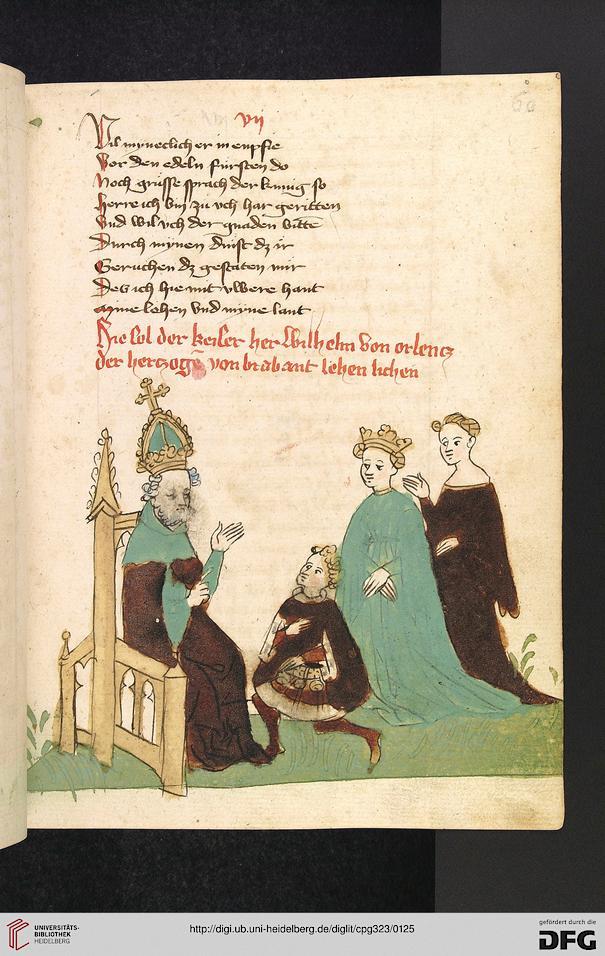 vij
60
Vil mynneclich er in enpfie
Vor den edeln fursten do
Noch grusse sprach der kunig so
Herre ich bin zu uch har geritten
Und wil uch der gnaden bitte
Durch mynen dinst dz ir
Geruchen dz gestaten mir
Des ich hie mit uwere hant
myne lehen und myne lant
Hie sol der keiser her wilhelm von orlens
der herczoge von brabant lehen lichen
UNIVERSITÄTS-
BIBLIOTHEK
HEIDELBERG
http://digi.ub.uni-heidelberg.de/diglit/cpg323/0125
gefördert durch die
DFG